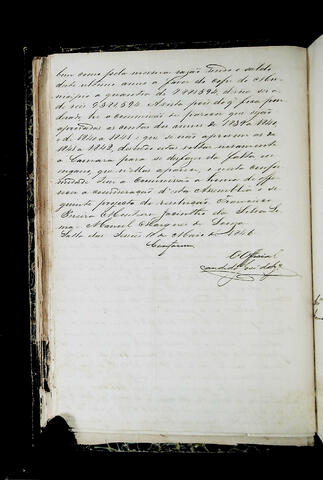 bem como pela mesma razão tendo o saldo
deste ultimo anno a favor do cofre do Mu-
nicipio a quantia de 2#811,594, deve ser a
de reis 2#311,594. A vista pois do q. fica pon-
derado, he a Commissão de parecer que sejão
approvadas as contas dos annos de 1839 a 1840,
e de 1840 a 1841; e que se não approvem as de
1841 a 1842, devendo estas voltar novamente
a Camara para se desfazer a falta ou
engano, que nellas apparece; e nesta confor-
midade tem a Commissão a honra de offere-
cer a consideração d'esta Assembléa o se-
guinte projecto de resolução. Francisco
Pereira Monteiro, Jacintho da Silva Li-
ma, Manoel Marques de Souza.
Salla das Sessões 11 de Maio de 1846.
Conforme
O Official